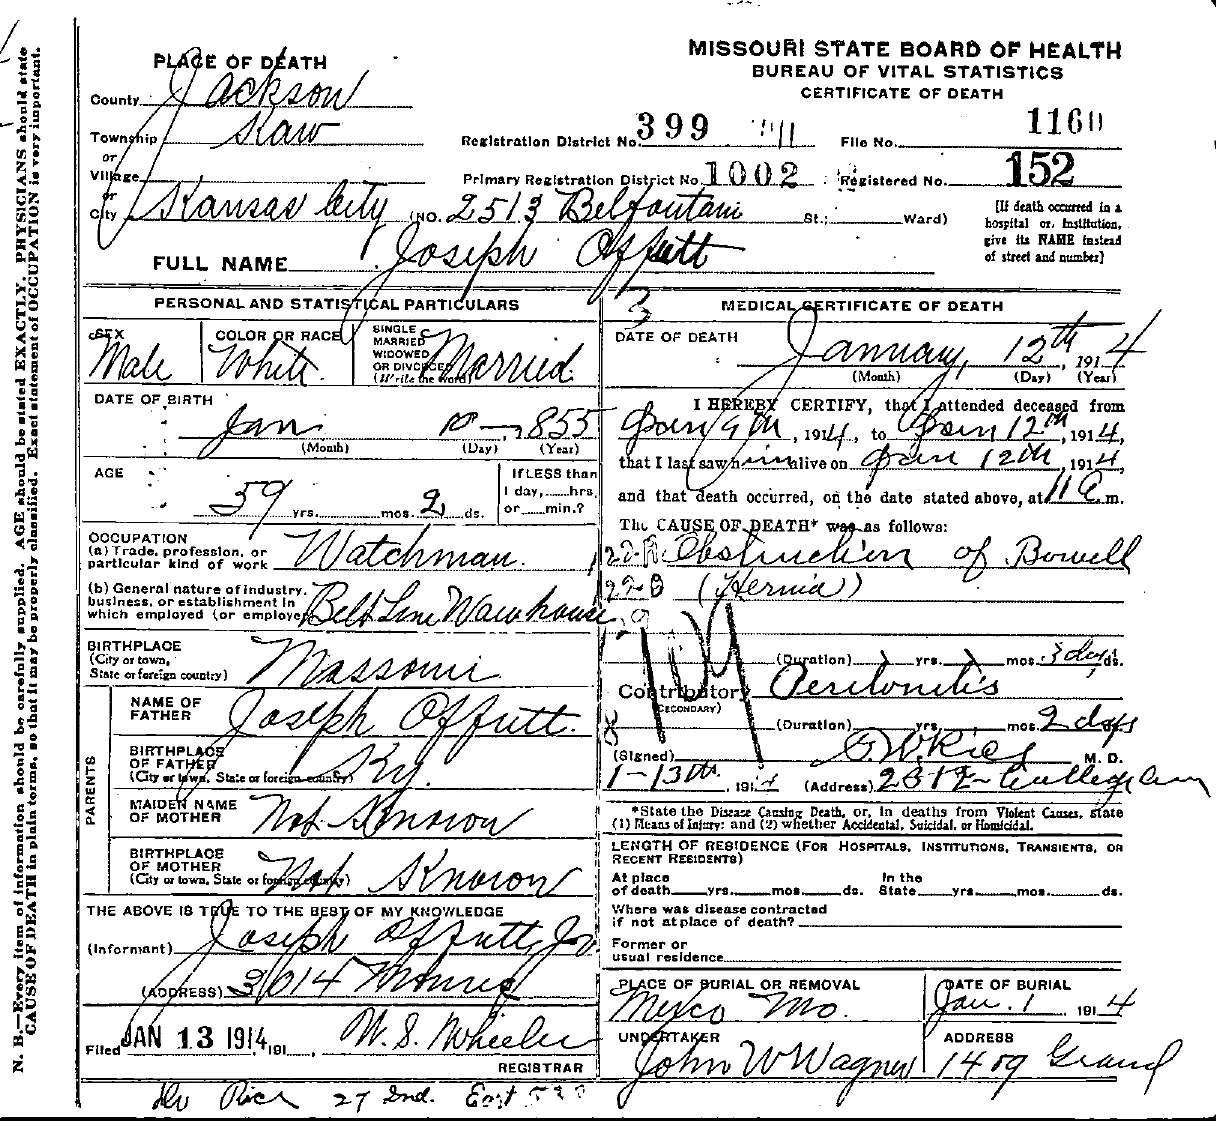 N. B.—Every item of information should be carefully supplied. AGE should be stated EXACTLY. PHYSICIANS should state
CAUSE OF DEATH in plain terms, so that it may be properly classified. Exact statement of OCCUPATION is very important.
MISSOURI STATE BOARD OF HEALTH
BUREAU OF VITAL STATISTICS
CERTIFICATE OF DEATH
PLACE OF DEATH
County Jackson
Township Kaw
or
Village
or
City Kansas City (NO. 2513 Belfontain St.; Ward)
Registration District No. 399
File No. 1160
Primary Registration District No. 1002
Registered No. 152
[If death occurred in a
hospital or institution,
give its NAME instead
of street and number]
FULL NAME Joseph Offutt
PERSONAL AND STATISTICAL PARTICULARS
SEX
Male
COLOR OR RACE
White
SINGLE
MARRIED
WIDOWED
OR DIVORCED
(Write the word)
Married
DATE OF BIRTH
Jan 10 1855
(Month) (Day) (Year)
AGE
59 yrs. mos. 2 ds.
If LESS than
1 day, hrs.
or min.?
OCCUPATION
(a) Trade, profession, or
particular kind of work Watchman
(b) General nature of industry,
business, or establishment in
which employed (or employer) Belt Line Warehouse
BIRTHPLACE
(City or town,
State or foreign country) Missouri
PARENTS
NAME OF
FATHER Joseph Offutt
BIRTHPLACE
OF FATHER
(City or town, State or foreign country) Ky.
MAIDEN NAME
OF MOTHER Not Known
BIRTHPLACE
OF MOTHER
(City or town, State or foreign country) Not Known
THE ABOVE IS TRUE TO THE BEST OF MY KNOWLEDGE
(Informant) Joseph Offutt Jr.
(ADDRESS) 3014 Monroe
Filed JAN 13 1914, 191 W. S. Wheeler
REGISTRAR
3 MEDICAL CERTIFICATE OF DEATH
DATE OF DEATH
January, 12th, 1914
(Month) (Day) (Year)
I HEREBY CERTIFY, that I attended deceased from
Jan 9th, 1914, to Jan 12th, 1914,
that I last saw him alive on Jan 12th, 1914,
and that death occurred, on the date stated above, at 11 a.m.
The CAUSE OF DEATH* was as follows:
Obstruction of Bowell
(Hernia)
109
(Duration) yrs. mos. 3 days ds.
Contributory Peritonitis
(SECONDARY)
(Duration) yrs. mos. 2 days
(Signed) M. D.
1-13th, 1914 (Address)
*State the Disease Causing Death, or, in deaths from Violent Causes, state
(1) Means of Injury; and (2) whether Accidental, Suicidal, or Homicidal.
LENGTH OF RESIDENCE (FOR HOSPITALS, INSTITUTIONS, TRANSIENTS, OR
RECENT RESIDENTS)
At place
of death yrs. mos. ds.
In the
State yrs. mos. ds.
Where was disease contracted
if not at place of death?
Former or
usual residence
PLACE OF BURIAL OR REMOVAL
Mexico Mo.
DATE OF BURIAL
Jan. 1 1914
UNDERTAKER
John W Wagner
ADDRESS
1409 Grand
27 2nd. East